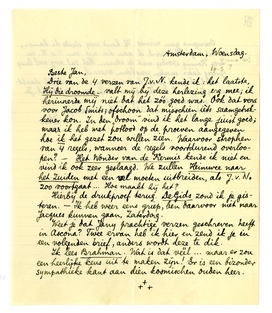 Amsterdam, Woensdag.
Beste Jan,
Drie van de 4 verzen van J.v.N. kende ik: het laatste,
Hij die droomde, valt mij bij deze herlezing erg mee; ik
herinnerde mij niet dat het zóó goed was. Ook dat vers
voor Jacob Smits; ofschoon dat misschien iets
kens kon. In den Droom vind ik het lange juist goed;
maar ik heb met potlood op de proeven aangegeven
hoe ik het gezet zou willen zien. Waarom strophen
van 4 regels, wanneer de regels voortdurend overloo-
pen? — Het Wonder van de Hermis kende ik niet en
vind ik ook zeer geslaagd. We zullen Heimwee naar
het Zuiden met een vel moeten uitbreiden, als J.v.N.
zoo voortgaat... Hoe maakt hij het?
Hierbij de drukproef terug. De Gids zond ik je gis-
teren. — Ik heb weer eens griep, ben daarvoor niet naar
Jacques kunnen gaan, Zaterdag.
Weet je dat Jany prachtige verzen geschreven heeft
in Ascona? Twee ervan heb ik hier en zend ik je in
een volgenden brief, anders wordt deze te dik.
Ik lees Brahman. Wat is dat véél... maar er zou
een heerlijke keus uit te maken zijn! Er is een bizonder
sympathieke kant aan dien kosmischen ouden heer.